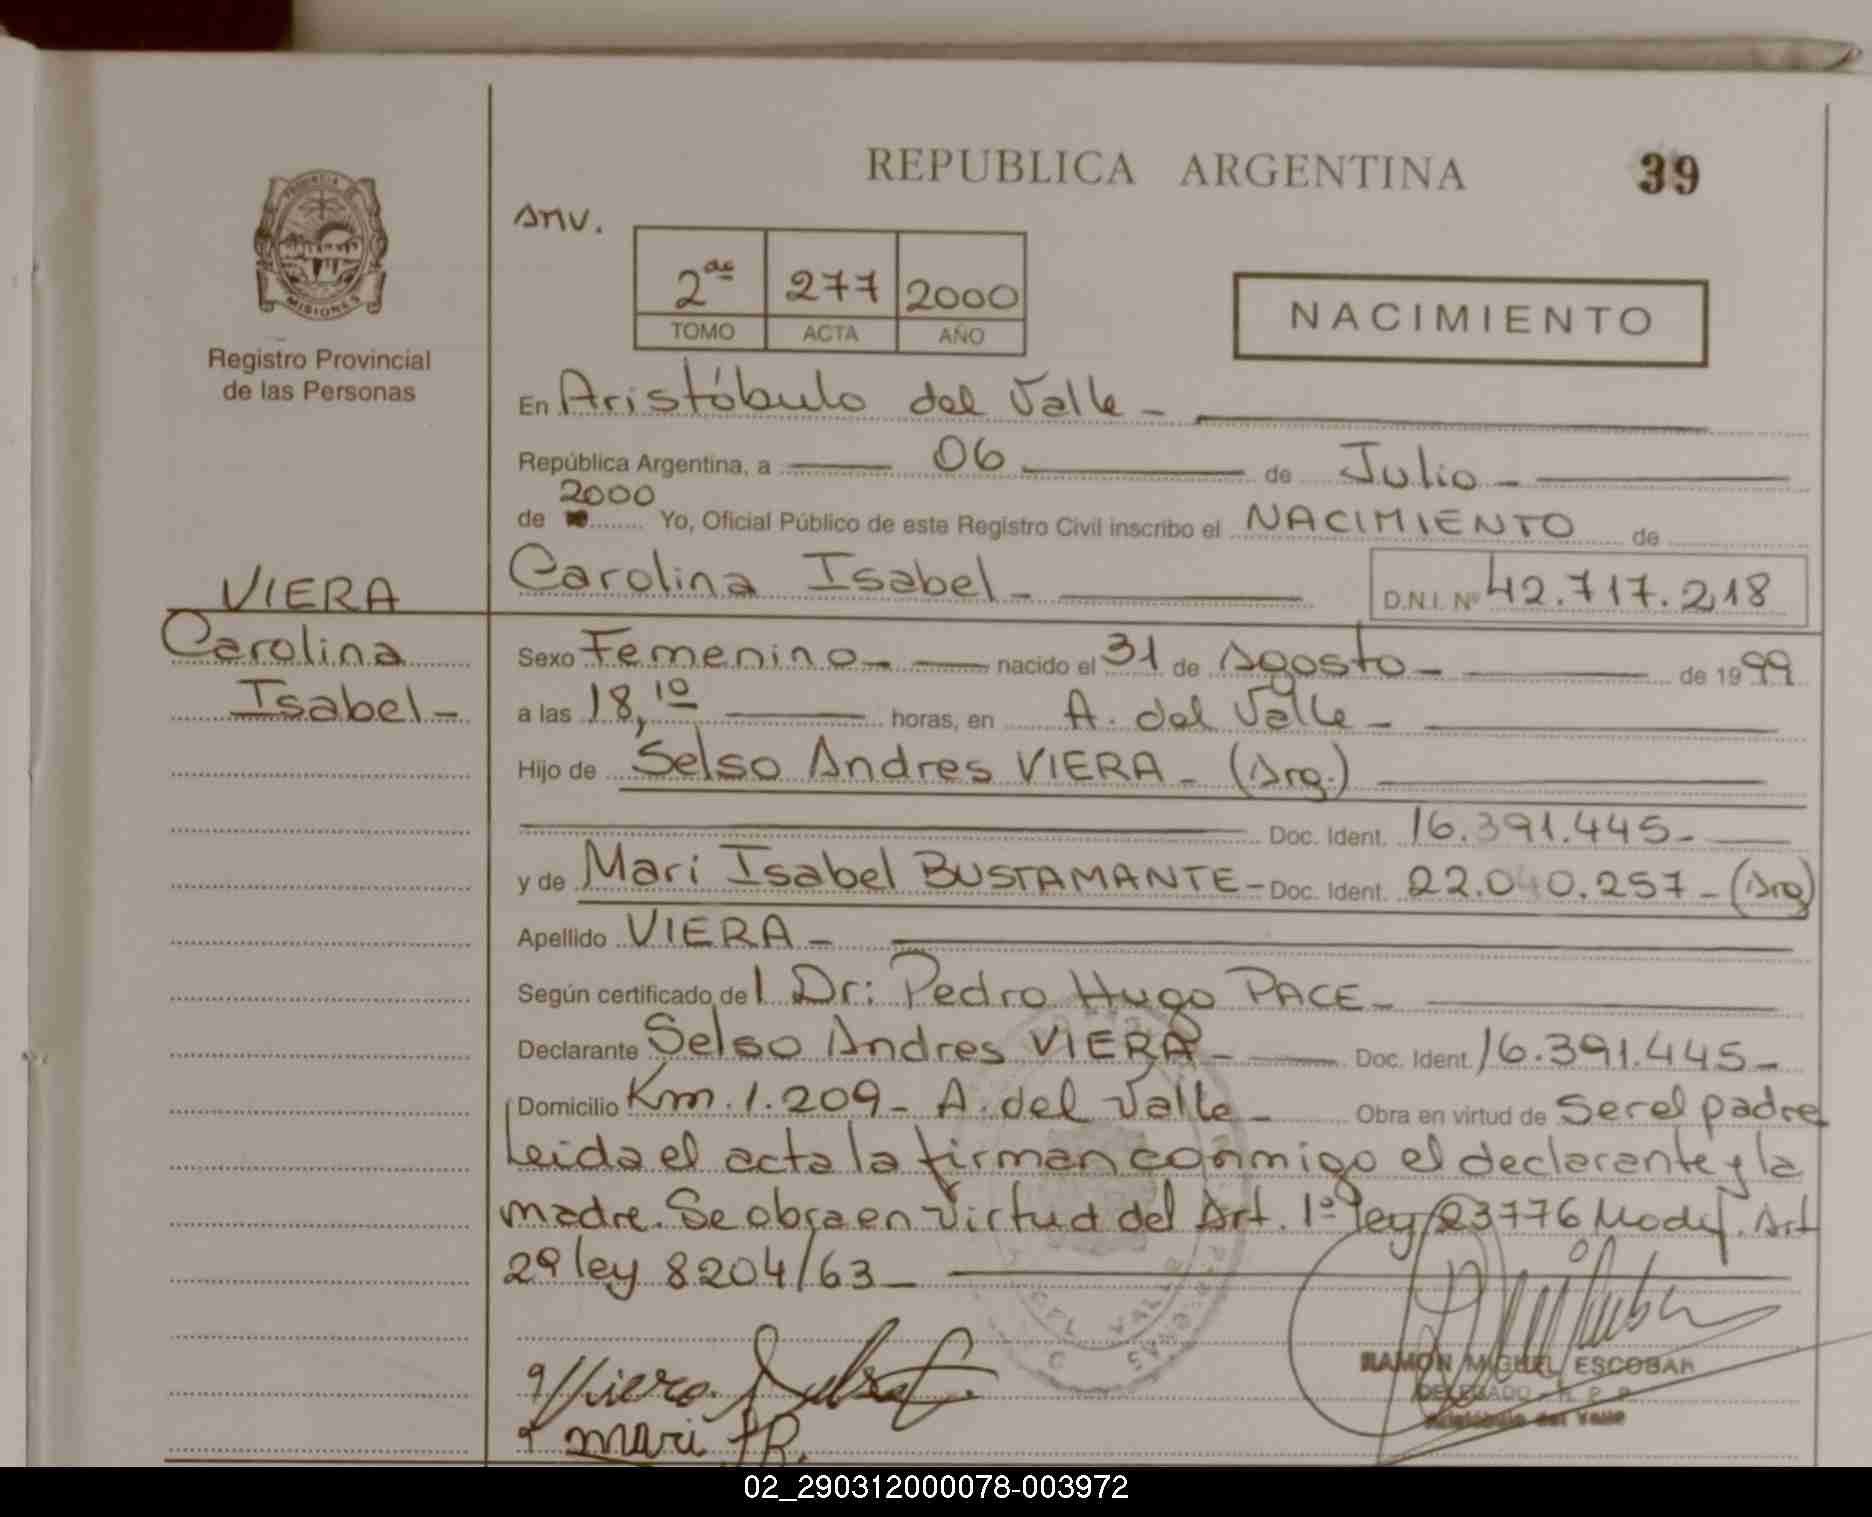 REPUBLICA ARGENTINA 39
PROVINCIA DE
MISIONES
Registro Provincial
de las Personas
Anv.
2do 277 2000
TOMO ACTA AÑO
NACIMIENTO
En Aristóbulo del Valle -
República Argentina, a 06 de Julio -
2000
de Yo, Oficial Público de este Registro Civil inscribo el NACIMIENTO de
VIERA
Carolina Isabel - D.N.I. Nº 42.717.218
Carolina
Isabel -
Sexo Femenino - nacido el 31 de Agosto - de 1999
a las 18,10 horas, en A. del Valle -
Hijo de Selso Andres VIERA - (Arg.)
Doc. Ident. 16.391.445 -
y de Mari Isabel BUSTAMANTE - Doc. Ident. 22.040.257 - (Arg)
Apellido VIERA -
Según certificado de l Dr: Pedro Hugo PACE -
Declarante Selso Andres VIERA - Doc. Ident. 16.391.445 -
Domicilio Km. 1.209 - A. del Valle - Obra en virtud de Ser el padre
Leida el acta la firman conmigo el declarante y la
madre. Se obra en Virtud del Art. 1º ley 23776 Modif. Art
29 ley 8204/63 -
Viera
Mari
RAMON MIGUEL ESCOBAR
DELEGADO - R. P. P.
Aristóbulo del Valle
02_290312000078-003972